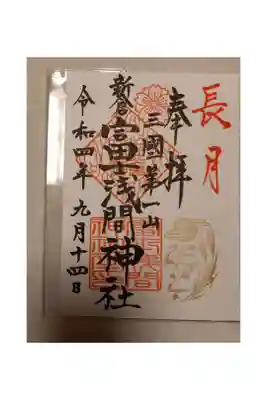 長月
奉拝
三國第一山
新倉富士浅間神社
令和四年九月十四日